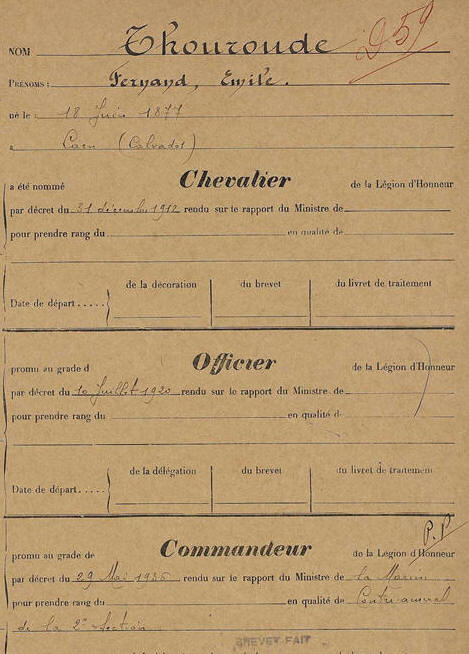 D 59
NOM Thouroude
PRÉNOMS : Fernand, Emile.
né le : 18 Juin 1877
a Caen (Calvados)
a été nommé Chevalier de la Légion d'Honneur
par décret du 31 décembre 1912 rendu sur le rapport du Ministre de
pour prendre rang du en qualité de
de la décoration du brevet du livret de traitement
Date de départ.....
promu au grade d Officier de la Légion d'Honneur
par décret du 10 Juillet 1920 rendu sur le rapport du Ministre de
pour prendre rang du en qualité d
de la délégation du brevet du livret de traitement
Date de départ.....
P.P
promu au grade de Commandeur de la Légion d'Honneur
par décret du 29 Mai 1936 rendu sur le rapport du Ministre de la Marine
pour prendre rang du en qualité de Contre-amiral
de la 2e Section
BREVET FAIT